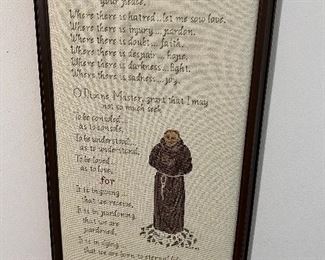 your peace.
Where there is hatred...let me sow love.
Where there is injury... pardon.
Where there is doubt... faith.
Where there is despair... hope.
Where there is darkness... light.
Where there is sadness... joy.
O Divine Master, grant that I may
not so much seek
To be consoled...
as to console,
To be understood...
as to understand,
To be loved...
as to love,
for
It is in giving...
that we receive,
It is in pardoning,
that we are
pardoned,
It is in dying...
that we are born to eternal